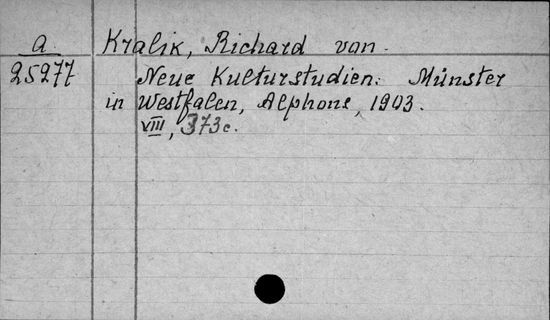 a Kralik, Richard von.
25277 Neue Kulturstudien. Münster
in Westfalen, Alphons, 1903.
VIII, 373c.